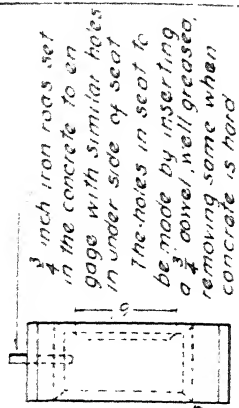 3/4 inch iron rods set
in the concrete to en
gage with similar holes
in under side of seat
The holes in seat to
be made by inserting
a 3/4 dowel, well greased,
removing same when
concrete is hard